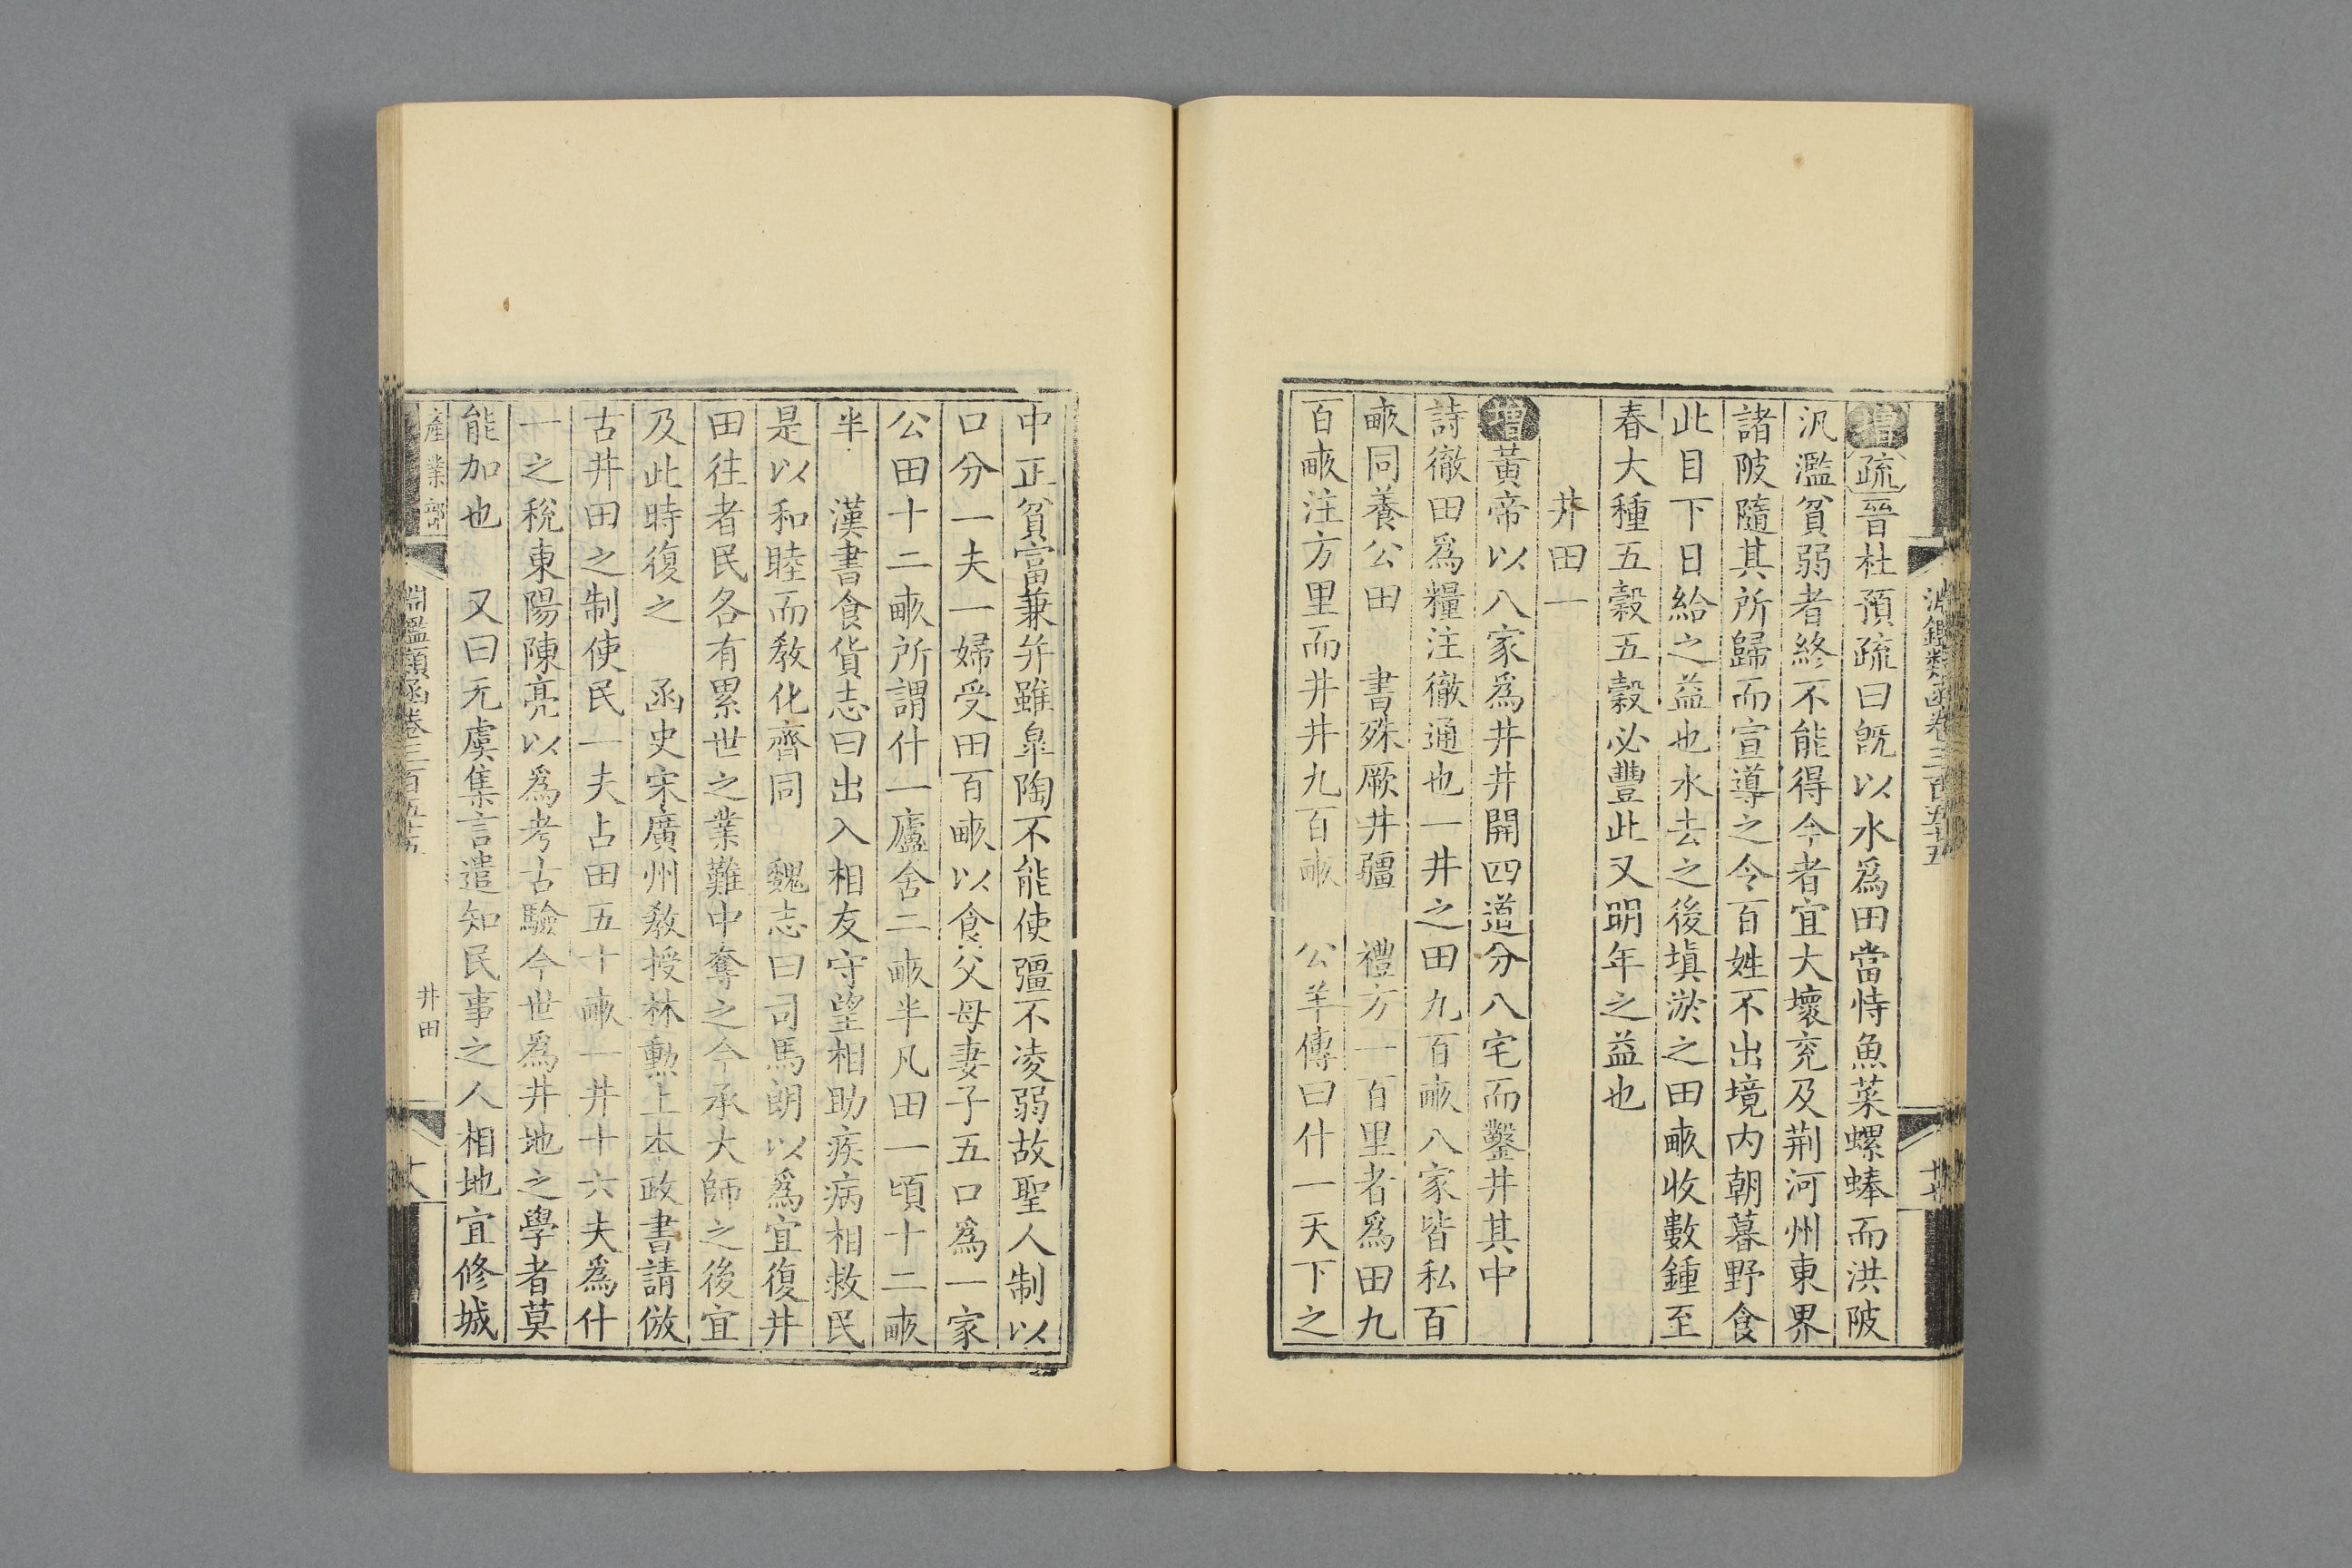 增疏晉杜預疏曰旣以水爲田當恃魚菜螺蜯而洪陂
汎濫貧弱者終不能得今者宜大壞兖及荆河州東界
諸陂隨其所歸而宣導之令百姓不出境内朝暮野食
此目下日給之益也水去之後塡淤之田畝收數鍾至
春大種五穀五穀必豐此又明年之益也
井田一
增黃帝以八家爲井井開四道分八宅而鑿井其中
詩徹田爲糧注徹通也一井之田九百畝八家皆私百
畝同養公田　書殊厥井疆　禮方一百里者爲田九
百畝注方里而井井九百畝　公羊傳曰什一天下之
淵鑑類函卷三百五十五
中正貧富兼并雖臯陶不能使彊不凌弱故聖人制以
口分一夫一婦受田百畝以食父母妻子五口爲一家
公田十二畝所謂什一廬舍二畝半凡田一頃十二畝
半　漢書食貨志曰出入相友守望相助疾病相救民
是以和睦而敎化齊同　魏志曰司馬朗以爲宜復井
田往者民各有累世之業難中奪之今承大師之後宜
及此時復之　函史宋廣州敎授林勲上本政書請倣
古井田之制使民一夫占田五十畝一井十六夫爲什
一之稅東陽陳亮以爲考古驗今世爲井地之學者莫
能加也　又曰元虞集言遣知民事之人相地宜修城
產業部　淵鑑類函卷三百五十五　井田